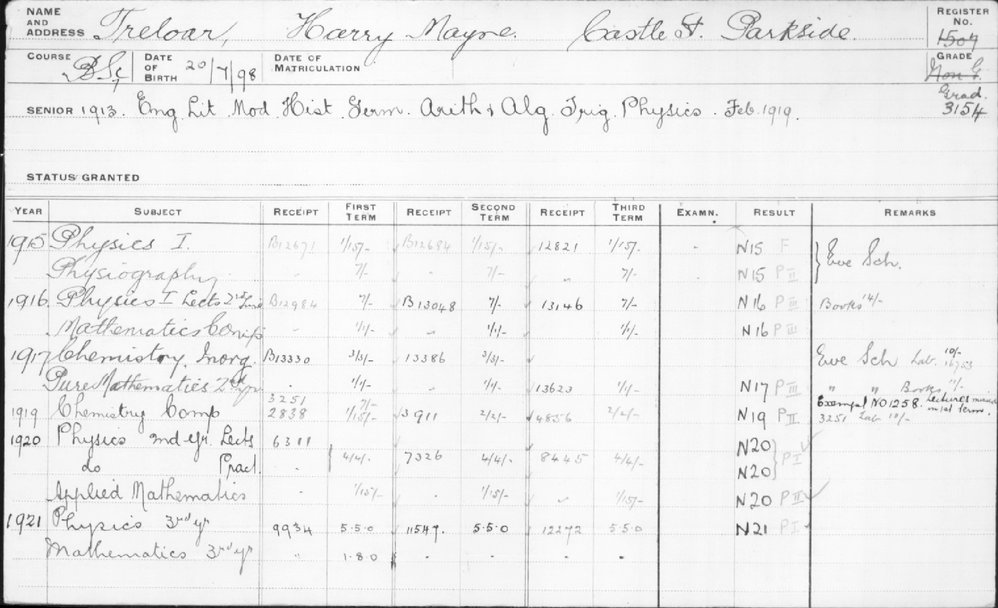 NAME AND ADDRESS Treloar, Harry Mayne. Castle St. Parkside. REGISTER No. 1507
COURSE B Sc DATE OF BIRTH 20/7/98 DATE OF MATRICULATION GRADE Non G. Grad. 3154
SENIOR 1913. Eng Lit. Mod. Hist. Germ. Arith & Alg. Trig. Physics. Feb. 1919.
STATUS GRANTED
YEAR SUBJECT RECEIPT FIRST TERM RECEIPT SECOND TERM RECEIPT THIRD TERM EXAMN. RESULT REMARKS
1915 Physics I. B12671 1/15/- B12684 1/15/- 12821 1/15/- N15 F Eve Sch.
Physiography. " 7/- " 7/- " 7/- N15 P II
1916 Physics I Lects 2nd B12984 7/- B13048 7/- 13146 7/- N16 P III Books 4/-
Mathematics Comp " 1/1/- " 1/1/- " 1/1/- N16 P III
1917 Chemistry, Inorg. B13330 3/3/- 13386 3/3/- Eve Sch Lab. 10/-
Pure Mathematics 2nd yr " 1/1/- " 1/1/- 13623 1/1/- N17 P III " " Books
3251 7/- Exempt NO 1258. Lectures
1919 Chemistry Comp 2838 1/15/- 3911 2/2/- 4856 2/2/- N19 P II 3251 Lab 10/-
1920 Physics 2nd yr. Lects 6311 N20
do Pract. " 4/4/- 7326 4/4/- 8445 4/4/- N20 P I
Applied Mathematics " 1/15/- 1/15/- " 1/15/- N20 P II
1921 Physics 3rd yr 9934 5.5.0 11547. 5.5.0 12272 5.5.0 N21 P I
Mathematics 3rd yr " 1.8.0